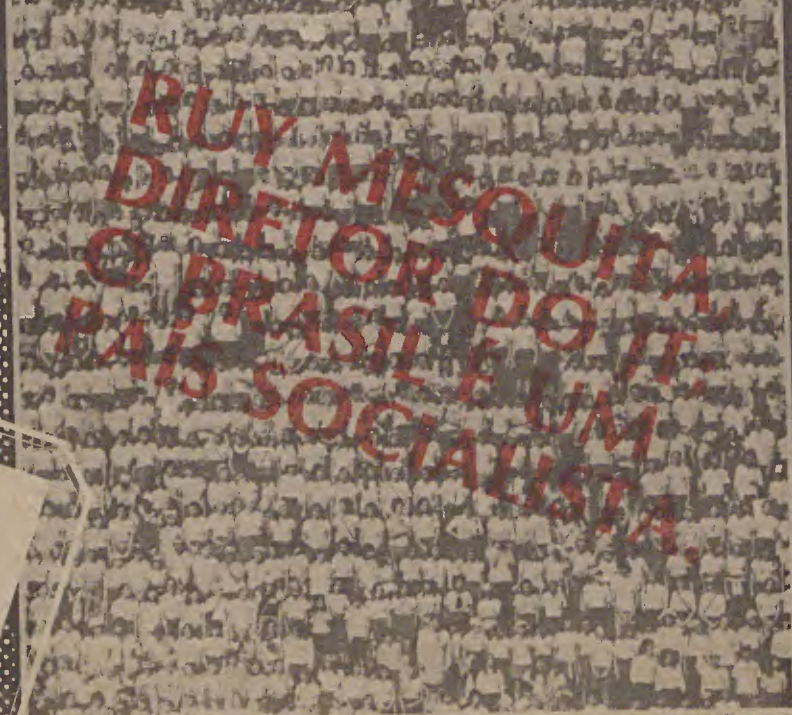 RUY MESQUITA,
DIRETOR DO JT:
O BRASIL É UM
PAÍS SOCIALISTA.